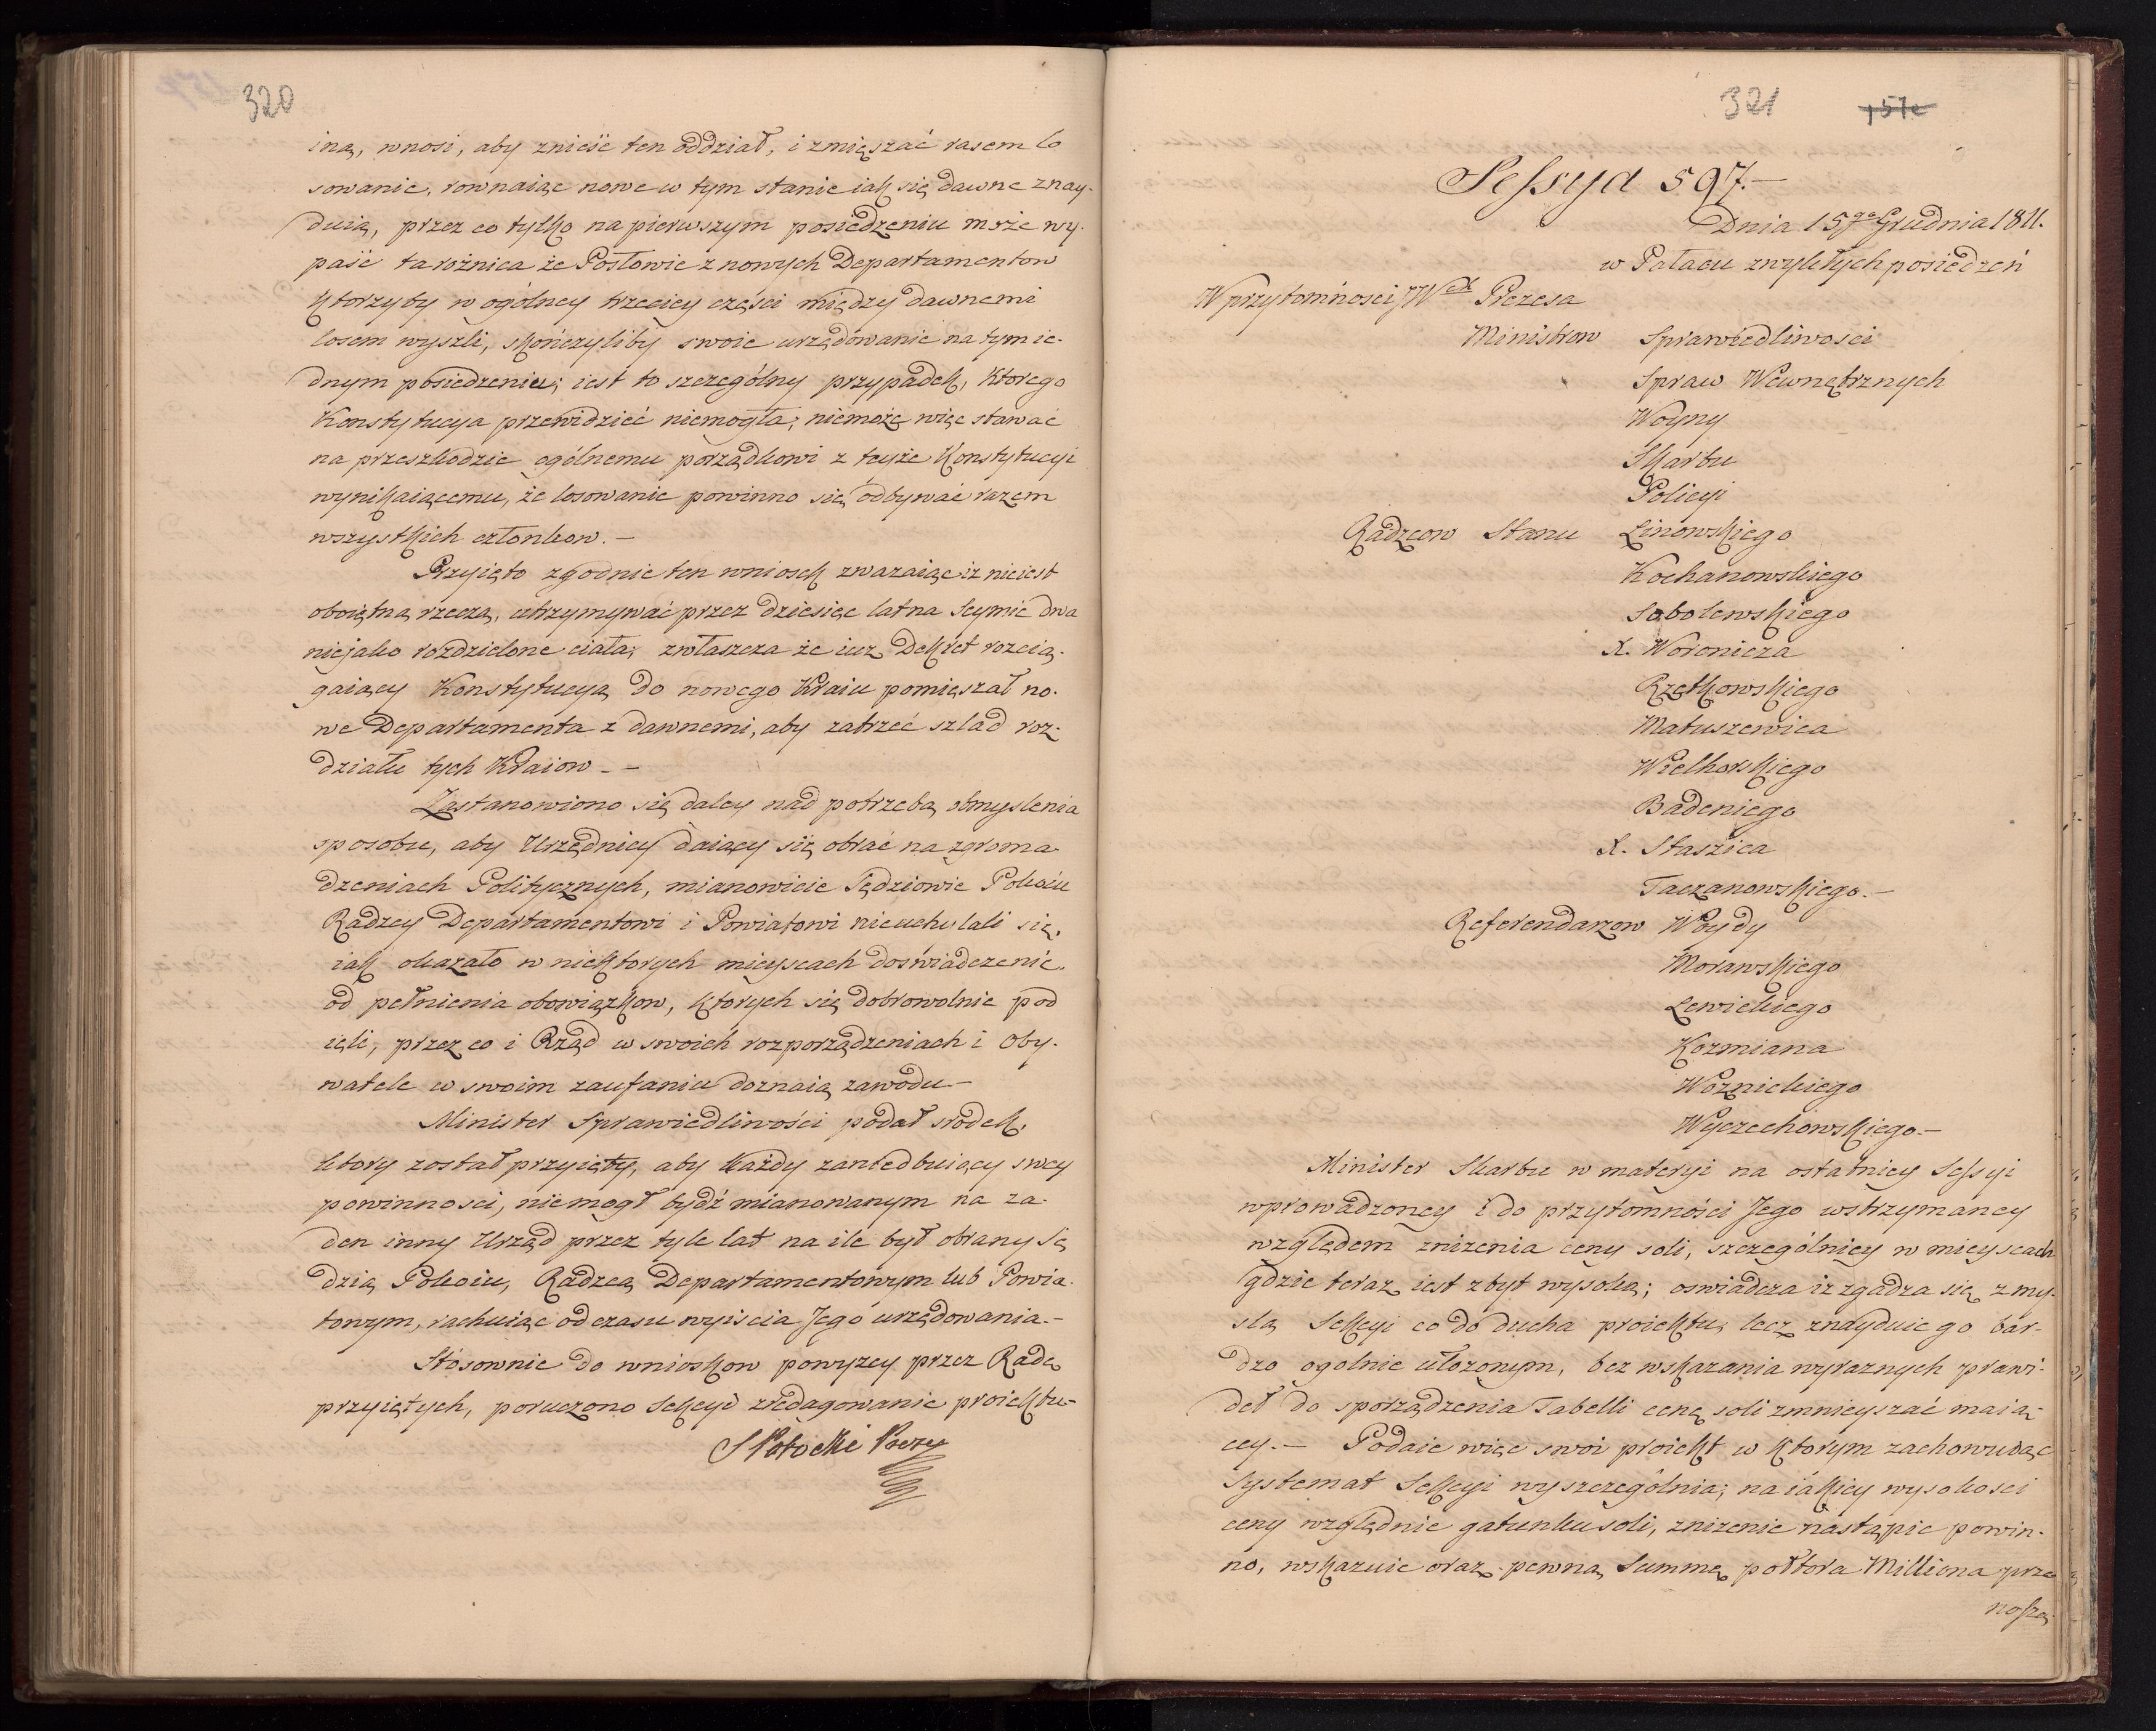 320
iną, wnosi, aby znieść ten oddział, i zmięszać rasem lo
sowanie, rownaiąc nowe w tym stanie iak się dawne znay-
duią, przez co tylko na pierwszym posiedzeniu może wy-
paść ta rożnica że Posłowie z nowych Departamentow
ktorzyby w ogólney trzeciey części między dawnemi
losem wyszli, skończyliby swoie urzędowanie na tym ie-
dnym posiedzeniu; iest to szczególny przypadek, ktorego
Konstytucya przewidzieć niemogła, niemoże więc stawać
na przeszkodzie ogólnemu porządkowi z teyże Konstytucyi
wynikaiącemu, że losowanie powinno się odbywać razem
wszystkich członkow.—
Przyięto zgodnie ten wniosek zwazaiąc iz nieiest
oboiętną rzeczą, utrzymywać przez dziesięc lat na Seymie dwa
niejako rozdzielone ciała; zwłaszcza że iuz Dekret rozcią-
gaiący Konstytucyą do nowego Kraiu pomięszał no-
we Departamenta z dawnemi, aby zatrzeć szlad roz-
działu tych Kraiow.—
Zastanowiono się daley nad potrzebą obmyslenia
sposobu, aby Urzędnicy daiący się obrać na zgroma-
dzeniach Politycznych, mianowicie Sędziowie Pokoiu
Radzcy Departamentowi i Powiatowi nieuchylali się,
iak okazało w niektorych mieyscach doświadczenie,
od pełnienia obowiązkow, ktorych się dobrowolnie pod
ięli, przez co i Rząd w swoich rozporządzeniach i Oby-
watele w swoim zaufaniu doznaią zawodu.—
Minister Sprawiedliwości podał srodek,
ktory został przyięty, aby każdy zaniedbuiący swey
powinnosci, niemogł bydź mianowanym na za-
den inny Urząd przez tyle lat na ile był obrany Sę
dzią Pokoiu, Radzcą Departamentowym lub Powia-
towym, rachuiąc od czasu wyiscia Jego urzędowania.—
Stósownie do wnioskow powyzey przez Radę
przyiętych, poruczono Sekcyi zredagowanie proiektu—
S Potocki Prezy
321
157e
Sessya 597.—
Dnia 15go Grudnia 1811.
w Pałacu zwykłych posiedzeń
W przytomności JWch Prezesa
Ministrow Sprawiedliwosci
Spraw Wewnętrznych
Woyny
Skarbu
Policyi
Radzcow Stanu Linowskiego
Kochanowskiego
Sobolewskiego
X. Woronicza
Rzętkowskiego
Matuszewica
Wielhorskiego
Badeniego
X. Staszica
Taczanowskiego.—
Referendarzow Woydy
Morawskiego
Lewickiego
Kozmiana
Woznickiego
Wyczechowskiego.—
Minister Skarbu w materyi na ostatniey Sessyi
wprowadzoney i do przytomności Jego wstrzymaney
względem zniżenia ceny soli, szczególniey w mieyscach
gdzie teraz iest zbyt wysoka; oswiadcza iz zgadza się z my-
slą Sekcyi co do ducha proiektu, lecz znayduie go bar-
dzo ogolnie ułozonym, bez wskazania wyraznych prawi-
deł do sporządzenia Tabelli cenę soli zmnieyszać maią-
cey.— Podaie więc swoi proiekt w ktorym zachowuiąc
Systemat Sekcyi wyszczególnia; na iakiey wysokosci
ceny względnie gatunku soli, zniżenie nastąpic powin-
no, wskazuie oraz pewną Summę połtora Milliona prze
noszą